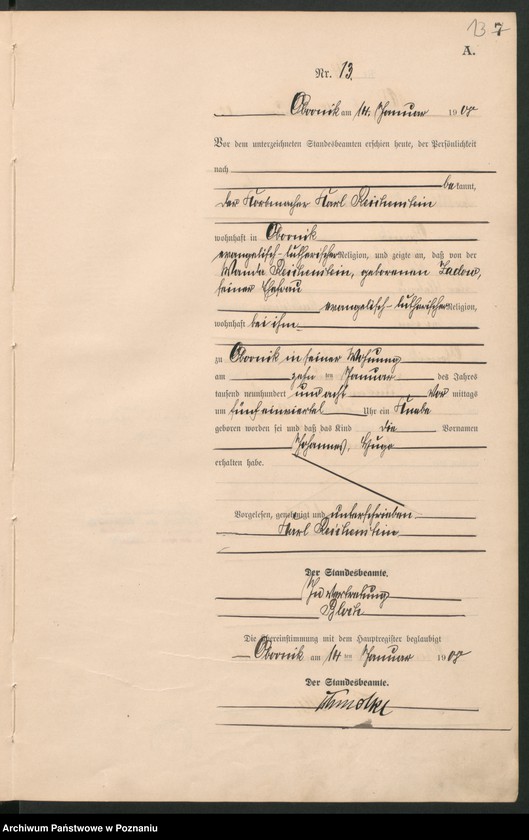 13 7
A.
Nr. 13.
Obornik am 14. Januar 1908
Vor dem unterzeichneten Standesbeamten erschien heute, der Persönlichkeit
nach
bekannt,
der Korbmacher Karl Reichenstein
wohnhaft in Obornik
evangelisch-lutherischer Religion, und zeigte an, daß von der
Wanda Reichenstein, geborenen Zadow,
seiner Ehefrau
evangelisch-lutherischer Religion,
wohnhaft bei ihm
zu Obornik in seiner Wohnung
am zehn ten Januar des Jahres
tausend neunhundert und acht Vor mittags
um fünfeinviertel Uhr ein Knabe
geboren worden sei und daß das Kind die Vornamen
Johannes, Hugo
erhalten habe.
Vorgelesen, genehmigt und unterschrieben
Karl Reichenstein
Der Standesbeamte.
In Vertretung
Die Übereinstimmung mit dem Hauptregister beglaubigt
Obornik am 14 ten Januar 1908
Der Standesbeamte.
Archiwum Państwowe w Poznaniu